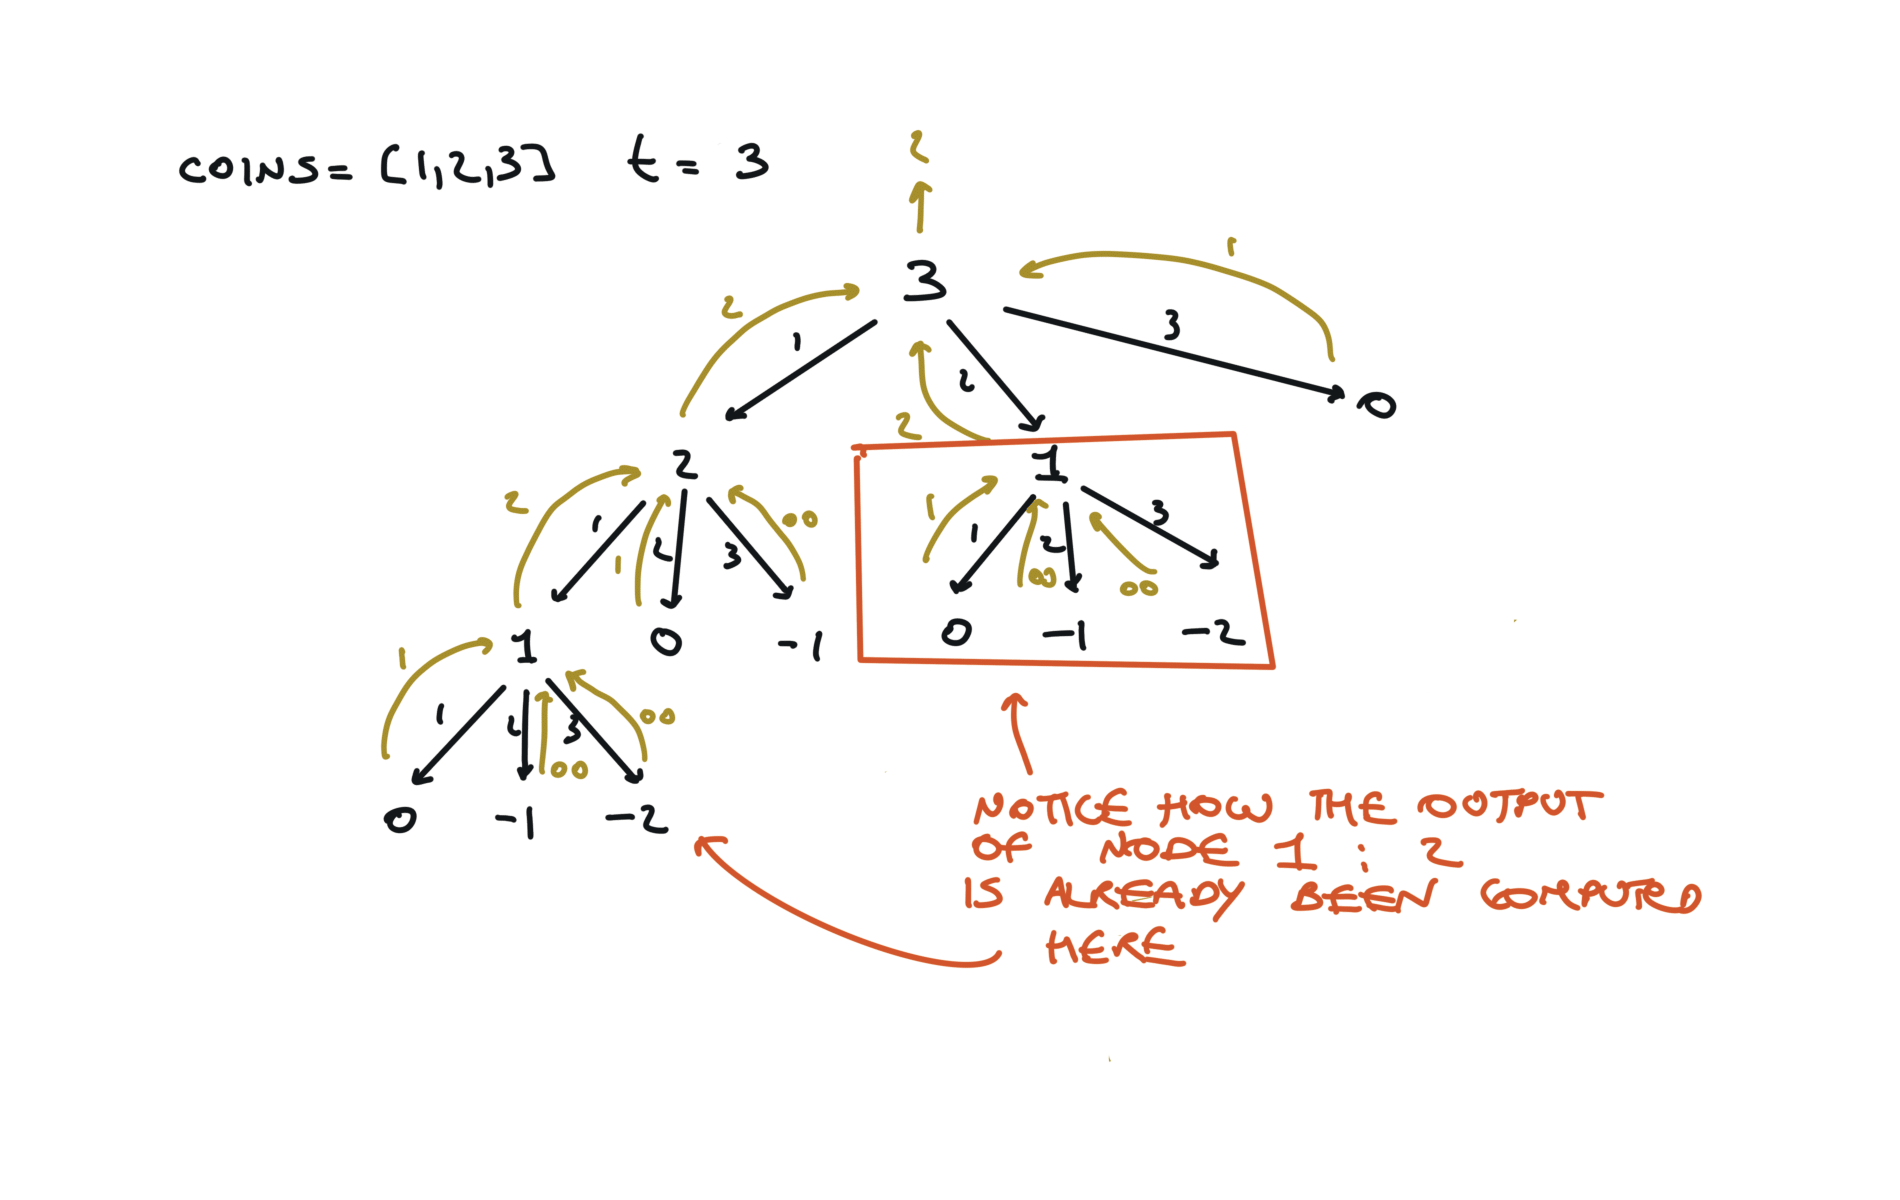 COINS = [1,2,3]  t = 3
2
1
3
2
1
2
3
2
0
2
1
2
1
2
1
2
3
∞
1
1
2
3
∞
∞
1
0
-1
0
-1
-2
1
1
2
3
∞
∞
0
-1
-2
NOTICE HOW THE OUTPUT
OF NODE 1 : 2
IS ALREADY BEEN COMPUTED
HERE